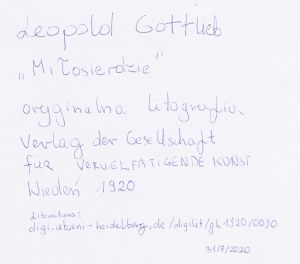 Leopold Gottlieb
„Miłosierdzie"
oryginalna litografia.
Verlag der Gesellschaft
für VERVIELFATIGENDE KUNST
Wiedeń 1920
Literatura:
digi.ub.uni-heidelberg.de/diglit/gk1920/0090
31/7/2020